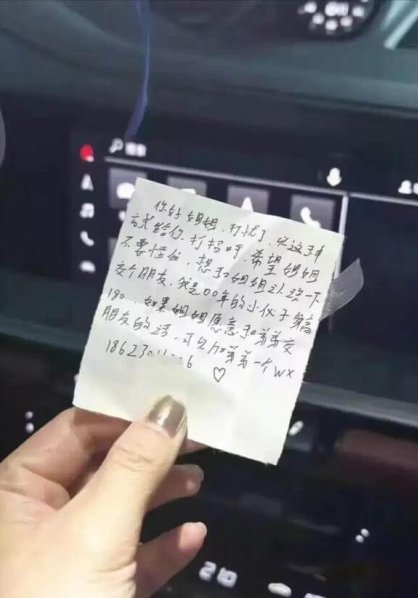 你好姐姐，打扰了，以这种
方式给你打招呼，希望姐姐
不要怪我，想和姐姐认识一下
交个朋友，我是00年的小伙子身高
180 如果姐姐愿意和弟弟交
朋友的话，可以加弟弟一个WX
♡